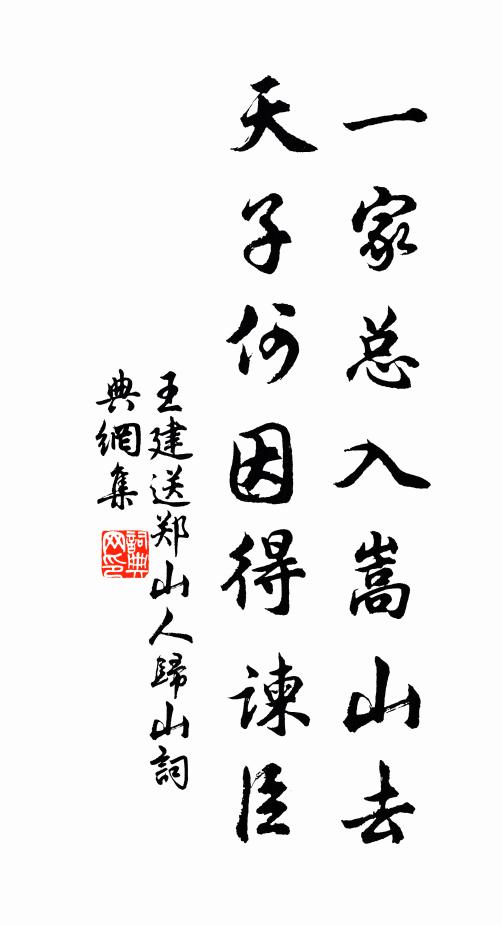 一家总入嵩山去
天子何因得谏臣
王建送郑山人歸山詞
典網集
詞典
网印